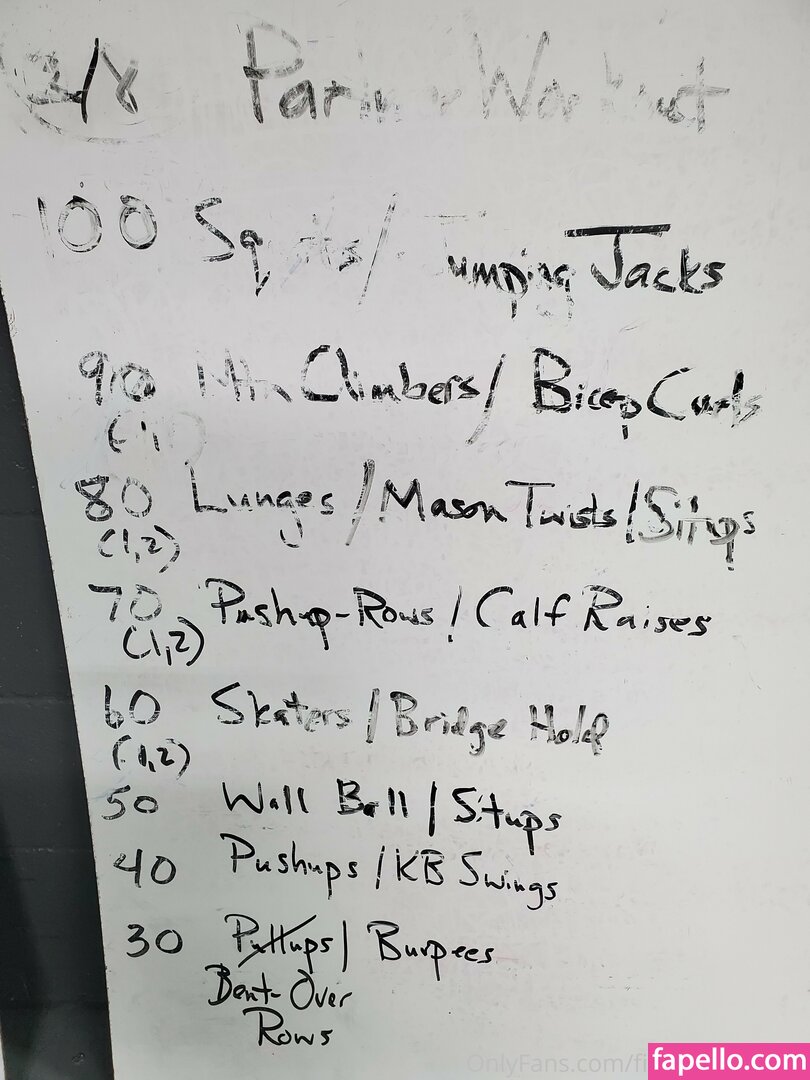 3/8 Partner Workout
100 Squats/Jumping Jacks
90 Mtn Climbers/Bicep Curls
(1,
80 Lunges/Mason Twists/Situps
(1,2)
70 Pushup-Rows/Calf Raises
(1,2)
60 Skaters/Bridge Hold
(1,2)
50 Wall Ball/Situps
40 Pushups/KB Swings
30 Pullups/Burpees
Bent-Over
Rows
OnlyFans.com/fi
fapello.com